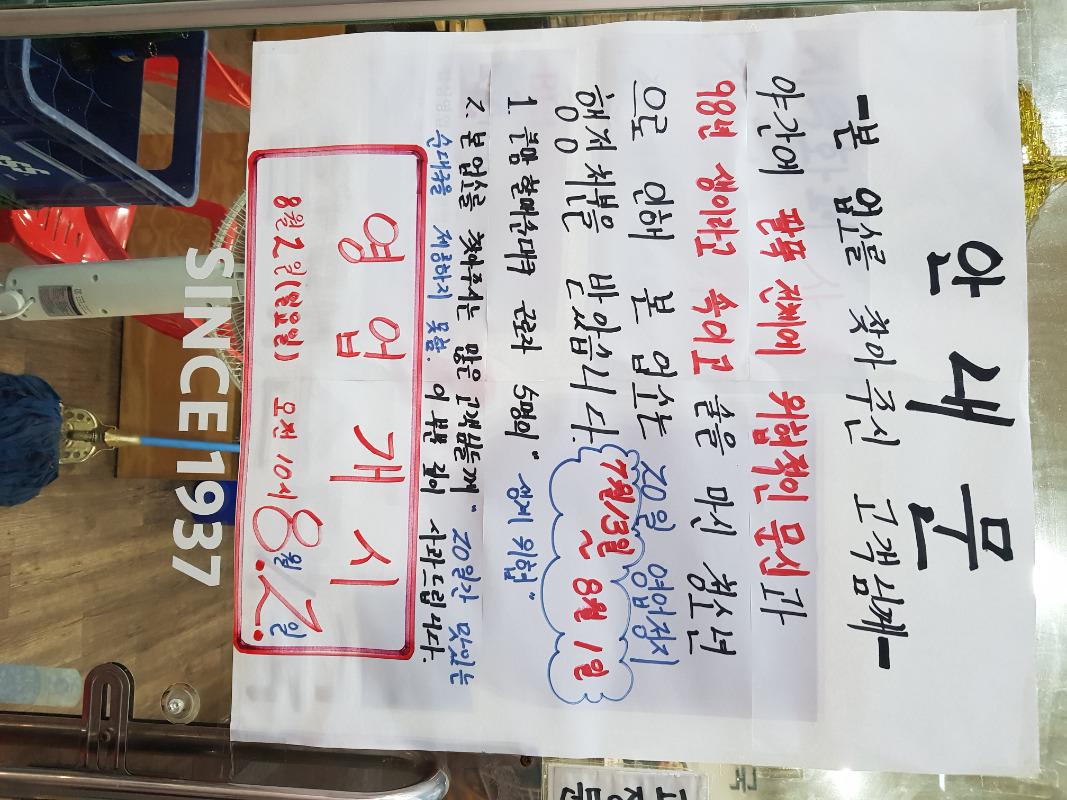 안내문
-본 업소를 찾아주신 고객님께-
야간에 팔뚝 전체에 위협적인 문신과
98년 생이라고 속이고 술을 마신 청소년
으로 인해 본 업소는 20일 영업정지
행정처분을 받았습니다.
7월/3일 ~ 8월 1일
1. 들망 할매순대국 근로자 5명이 "생계 위협"
2. 본 업소를 찾아주시는 많은 고객님들께 "20일간 맛있는
순대국을 제공하지 못함. 이 부분 깊이 사과드립니다.
영업개시
8월 2일(월요일) 오전 10시
8월 2일
SINCE 1937